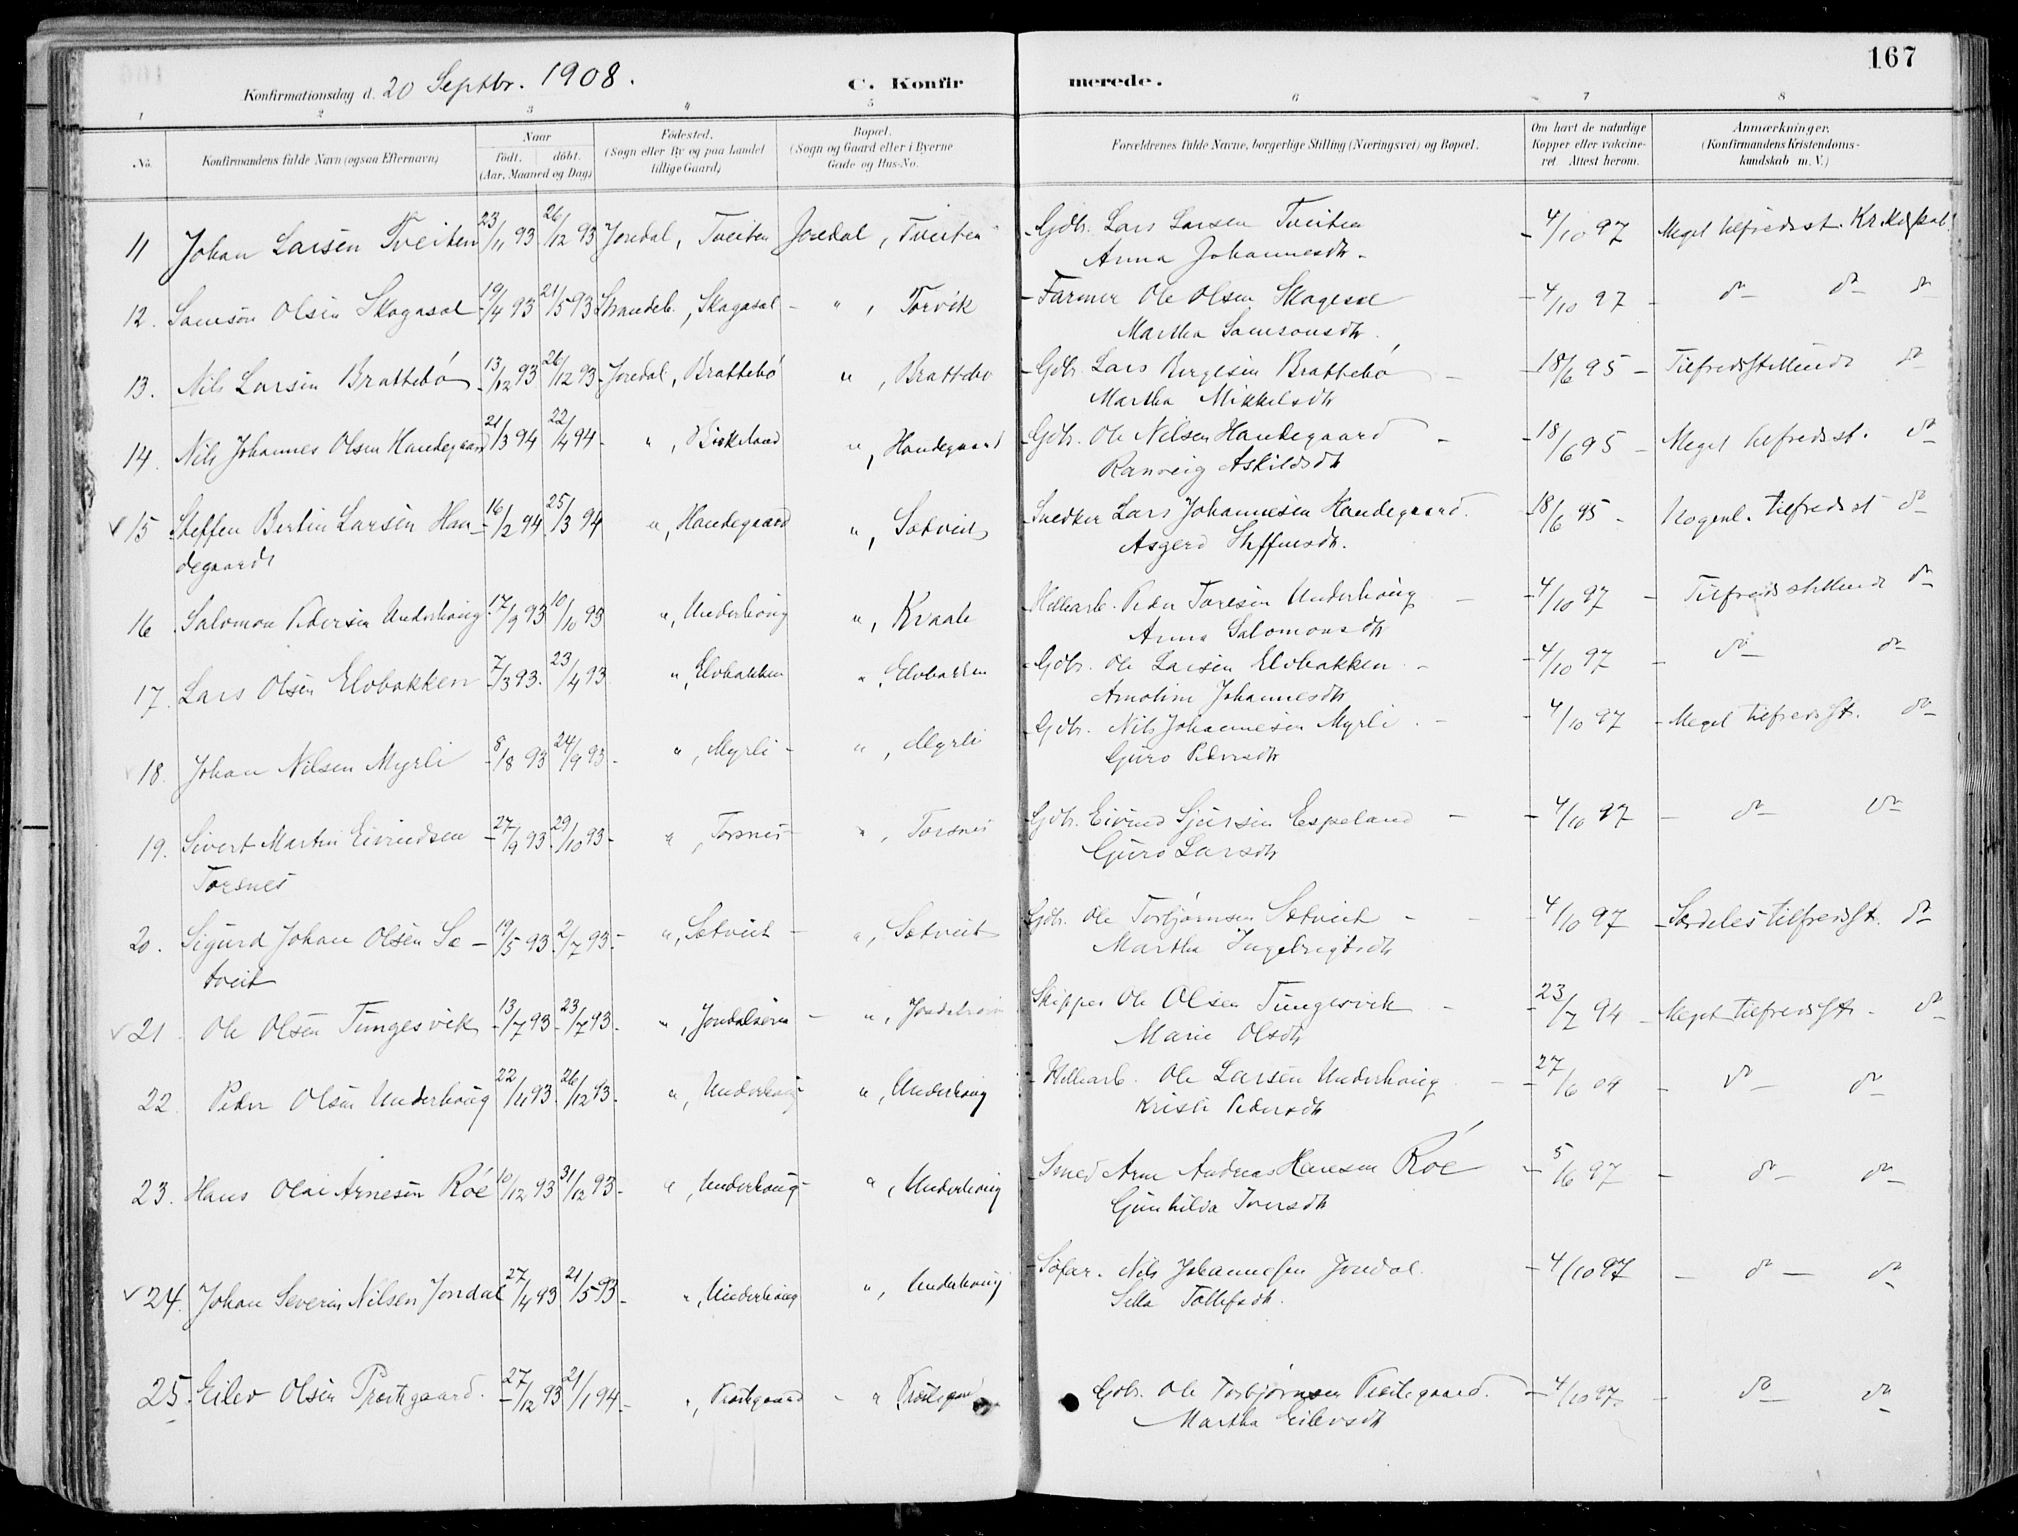 167
Konfirmationsdag d. 20 Septbr. 1908. C. Konfirmerede.
1 2 3 4 5 6 7 8
No. Konfirmandens fulde Navn (ogsaa Efternavn) Naar født. døbt. (Aar, Maaned og Dag) Fødested. (Sogn eller By og paa Landet tillige Gaard) Bopæl. (Sogn og Gaard eller i Byerne Gade og Hus-No. Forældrenes fulde Navne, borgerlige Stilling (Næringsvei) og Bopæl. Om havt de naturlige Kopper eller vakcineret. Attest herom. Anmærkninger. (Konfirmandens Kristendomskundskab m. V.)
11 Johan Larsen Tveiten 23/11 93 26/12 93 Jondal, Tveiten Jondal, Tveiten Gdbr. Lars Larsen Tveiten 4/10 97 Meget tilfredsst. Kr.
Anna Johannesdtr.
12. Samson Olsen Skogasæl 19/4 93 21/5 93 Strandeb., Skogasæl " , Torvik Farmer Ole Olsen Skogesæl 4/10 97 do do do
Martha Samsonsdtr.
13. Nils Larsen Brattebø 13/12 93 26/12 93 Jondal, Brattebø " , Brattebø Gdbr. Lars Birgesen Brattebø 18/6 95 Tilfredsstillende do
Martha Mikkelsdtr
14. Nils Johannes Olsen Handegaard 21/3 94 22/4 94 " , Birkeland " , Handegaard Gdbr. Ole Nilsen Handegaard 18/6 95 Meget tilfredsst. do
Ranveig Askildsdtr
15 Steffen Bertin Larsen Han- 16/2 94 25/3 94 " , Handegaard " , Sætveit Snedker Lars Johannesen Handegaard. 18/6 95 Nogenl. tilfredsst do
degaard Asgerd Steffensdtr.
16 Salomon Pedersen Underhoug 17/9 93 10/10 93 " , Underhoug " , Kvaale Peder Toresen Underhoug 4/10 97 Tilfredsstillende do
Anna Salomonsdtr
17. Lars Olsen Elvbakken 7/3 93. 23/4 93 " , Elvbakken " , Elvbakken Gdbr. Ole Larsen Elvbakken 4/10 97 do do
Arnoline Johannesdtr
18. Johan Nilsen Myrli 8/8 93 24/9 93 " , Myrli " , Myrli Gdbr. Nils Johannesen Myrli 4/10 97 Meget tilfredsst. do
Guro Pedersdtr
19. Sivert Martin Eivindsen 27/9 93 29/10 93 " , Torsnes " , Torsnes Gdbr. Eivind Sjursen Espeland 4/10 97 do do
Torsnes Guro Larsdtr
20. Sigurd Johan Olsen Sæ- 19/5 93 2/7 93 " , Sætveit " , Sætveit Gdbr. Ole Torbjørnsen Sætveit 4/10 97 Særdeles tilfredsst. do
tveit Martha Ingebrigtsdtr
21 Ole Olsen Tungesvik 13/7 93 23/7 93 " , Jondalsøren " , Jondalsøren Skipper Ole Olsen Tungesvik 23/7 94 Meget tilfredsst. do
Marie Olsdtr
22 Peder Olsen Underhoug 22/11 93 26/12 93 " , Underhoug " , Underhoug Ole Larsen Underhoug 27/6 04 do do
Kristi Pedersdtr
23. Hans Olai Arnesen Róe 10/12 93 31/12 93 " , Underhoug " , Underhoug Smed Arne Andreas Hansen Róe 5/6 97 do do
Gunhilda Iversdtr
24. Johan Severin Nilsen Jondal 27/4 93 21/5 93 " , Underhoug " , Underhoug Søfar. Nils Johannessen Jondal 4/10 97 do do
Silla Tollefsdtr.
25. Eilev Olsen Præstegaard. 27/12 93 21/1 94 " , Præstegaard " Præstegaard Gdbr. Ole Torbjørnsen Præstegaard. 4/10 97 do do
Martha Eilevsdtr